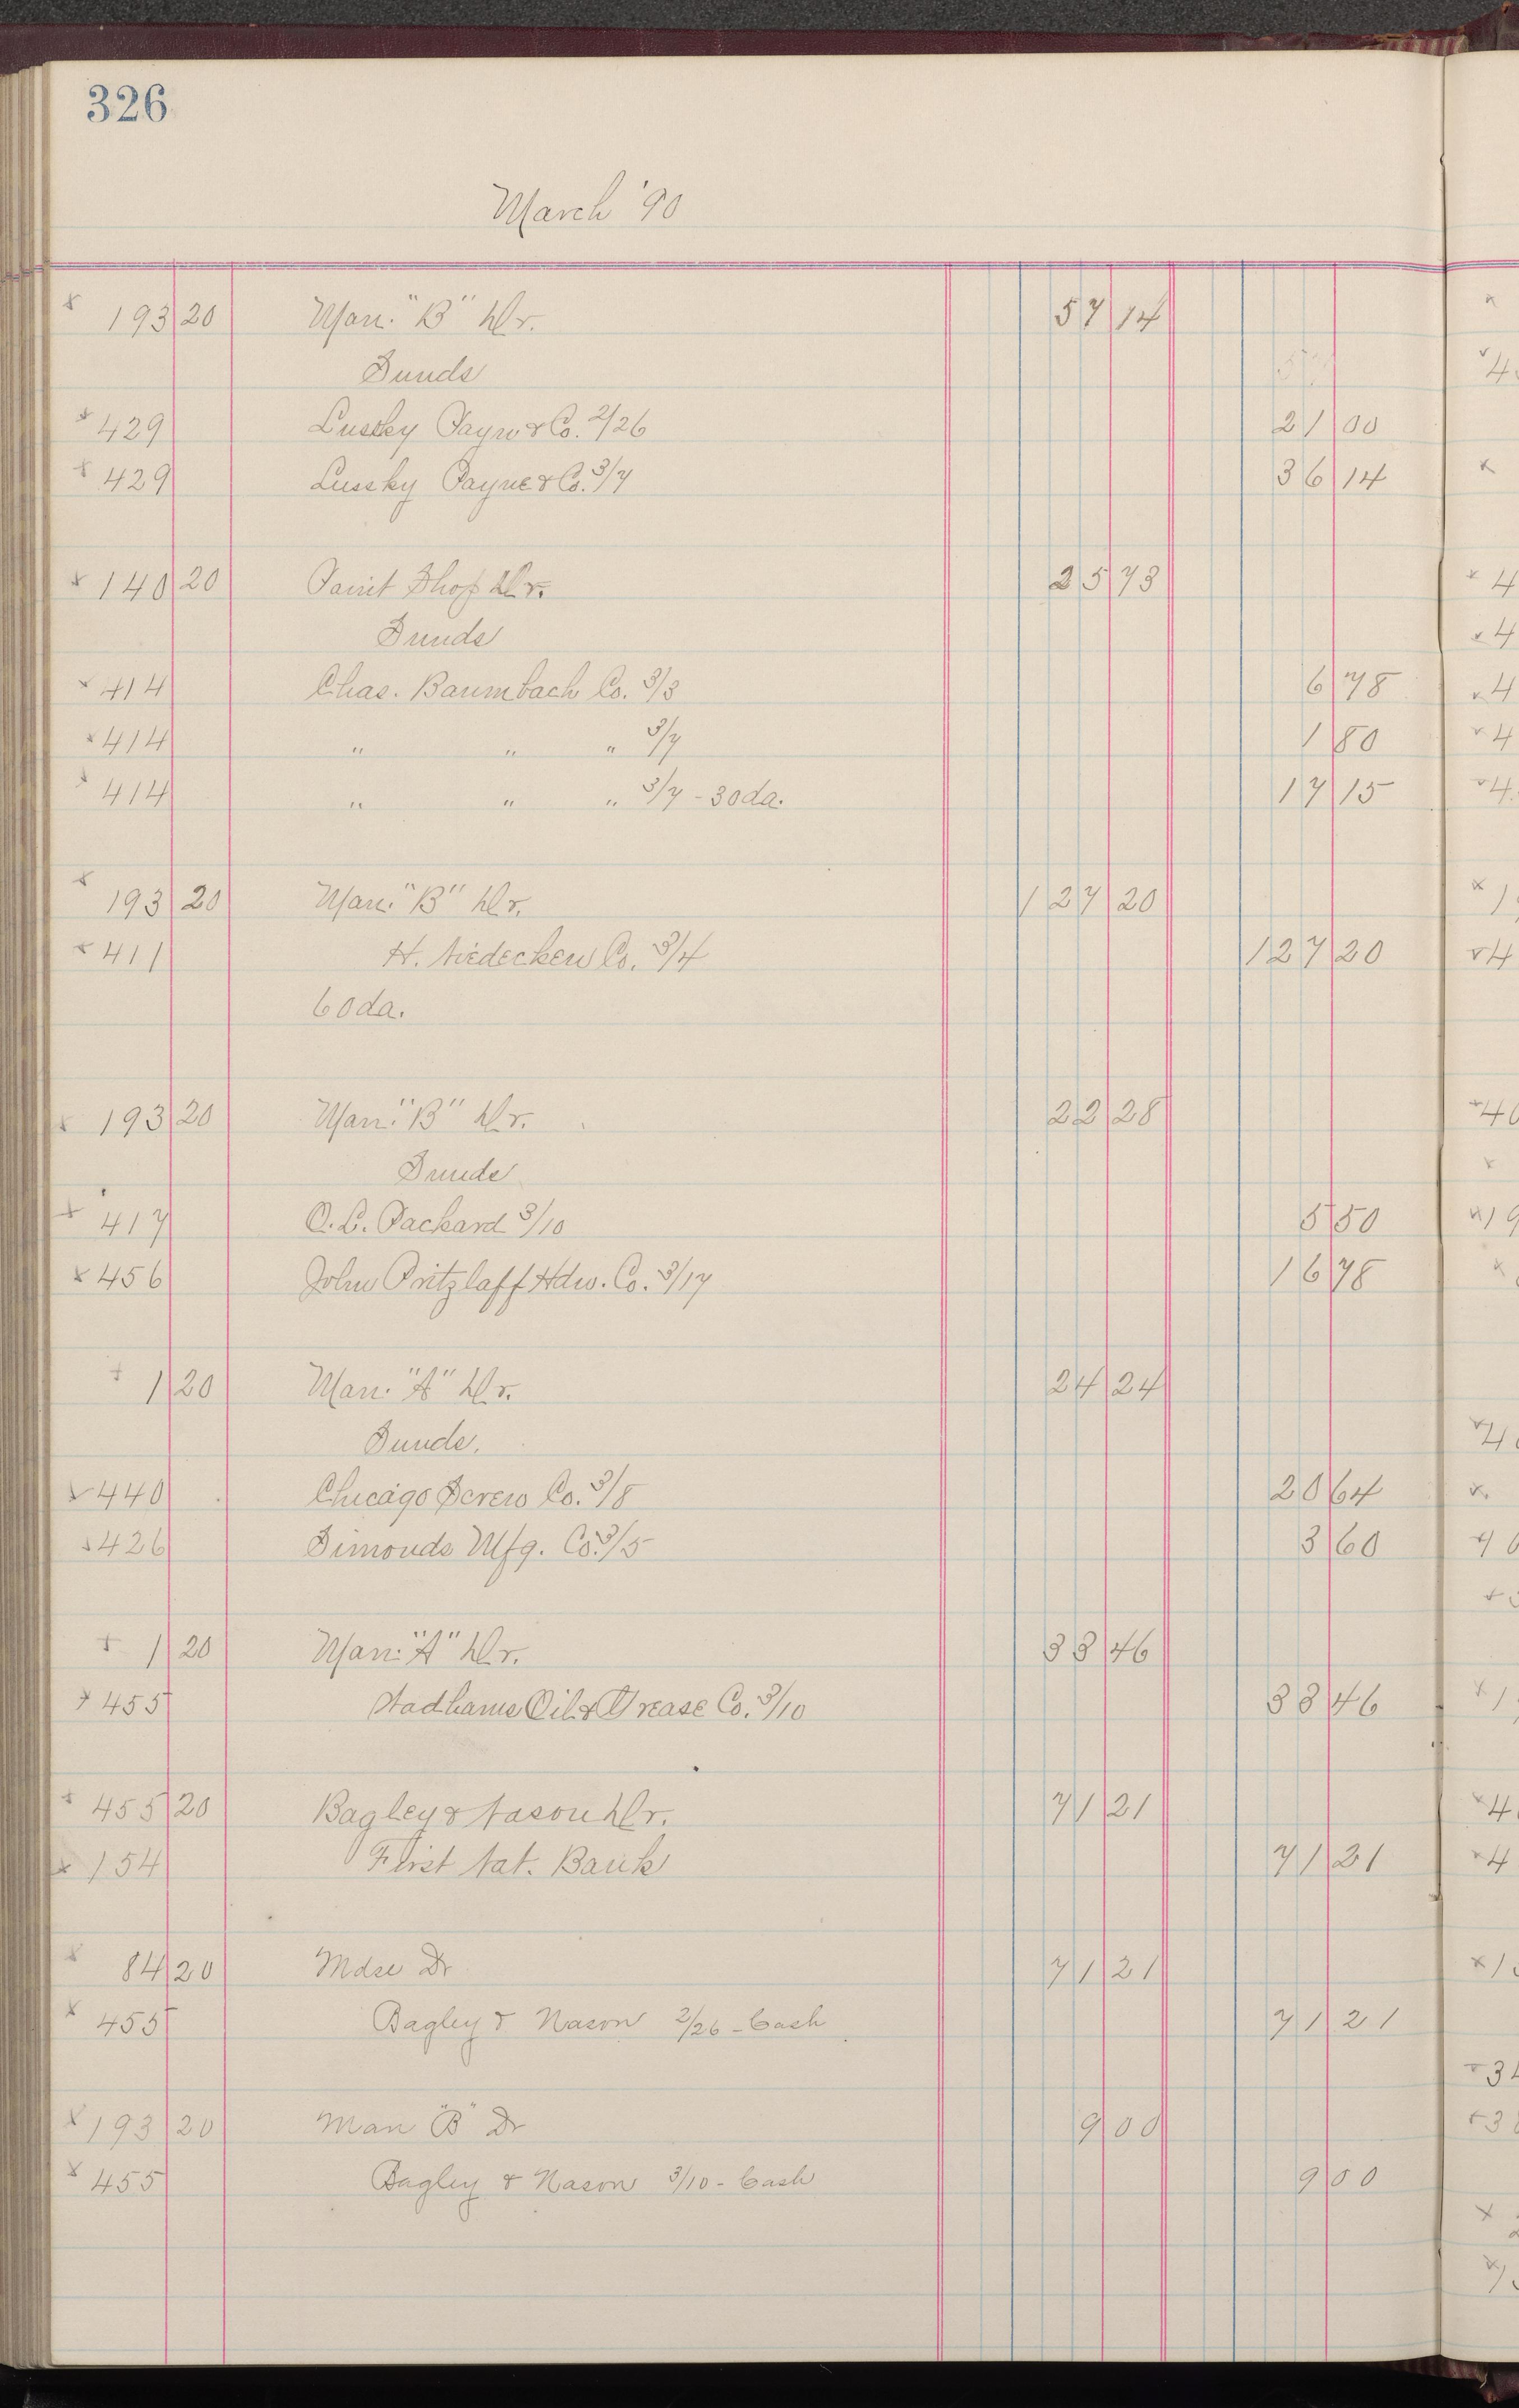 326
March '90
x 193 20 Man. "B" Dr. 57 14
Sunds
x 429 Lussky Payne & Co. 2/26 21 00
x 429 Lussky Payne & Co. 3/7 36 14
x 140 20 Paint Shop Dr. 25 73
Sunds
x 414 Chas. Baumbach Co. 3/3 6 78
x 414 " " " 3/7 1 80
x 414 " " " 3/7 - 30 da. 17 15
x 193 20 Man. "B" Dr. 127 20
x 411 H. Niedecken Co. 3/4 127 20
60 da.
x 193 20 Man. "B" Dr. 22 28
Sunds
x 417 O. L. Packard 3/10 5 50
x 456 John Pritzlaff Hdw. Co. 3/17 16 78
x 1 20 Man. "A" Dr. 24 24
Sunds.
x 440 Chicago Screw Co. 3/8 20 64
x 426 Simonds Mfg. Co. 3/5 3 60
x 1 20 Man. "A" Dr. 33 46
x 455 Wadhams Oil & Grease Co. 3/10 33 46
x 455 20 Bagley & Nason Dr. 71 21
x 154 First Nat. Bank 71 21
x 84 20 Mdse Dr 71 21
x 455 Bagley & Nason 2/26 - Cash 71 21
x 193 20 Man "B" Dr 9 00
x 455 Bagley & Nason 3/10 - Cash 9 00